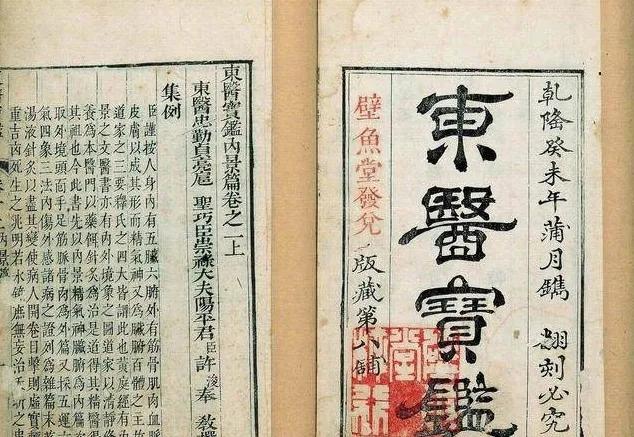 乾隆癸未年蒲月鐫 翻刻必究
東醫寶鑑
壁魚堂發兌
版藏第八鋪
東醫寶鑑內景篇卷之一上
東醫忠勤貞亮扈 聖功臣崇祿大夫陽平君臣許浚奉 教撰
集例
臣謹按人身內有五臟六腑外有筋骨肌肉血脈
皮膚以成其形而精氣神又爲臟腑百體之主故
道家之三要釋氏之四大皆謂此也黃庭經有內
景之文醫書亦有內外境象之圖道家以清靜修
養爲本醫門以藥餌針灸爲治是道得其精醫
其粗也今此書先以內景精氣神臟腑爲內篇次
取外境頭面手足筋脈骨肉爲外篇又採五運六
氣四象三法內傷外感諸病之證列爲雜篇末
湯液針灸以盡其變使病人開卷目擊則虛實
重吉凶死生之兆明若水鏡庶無妄治夭折之患